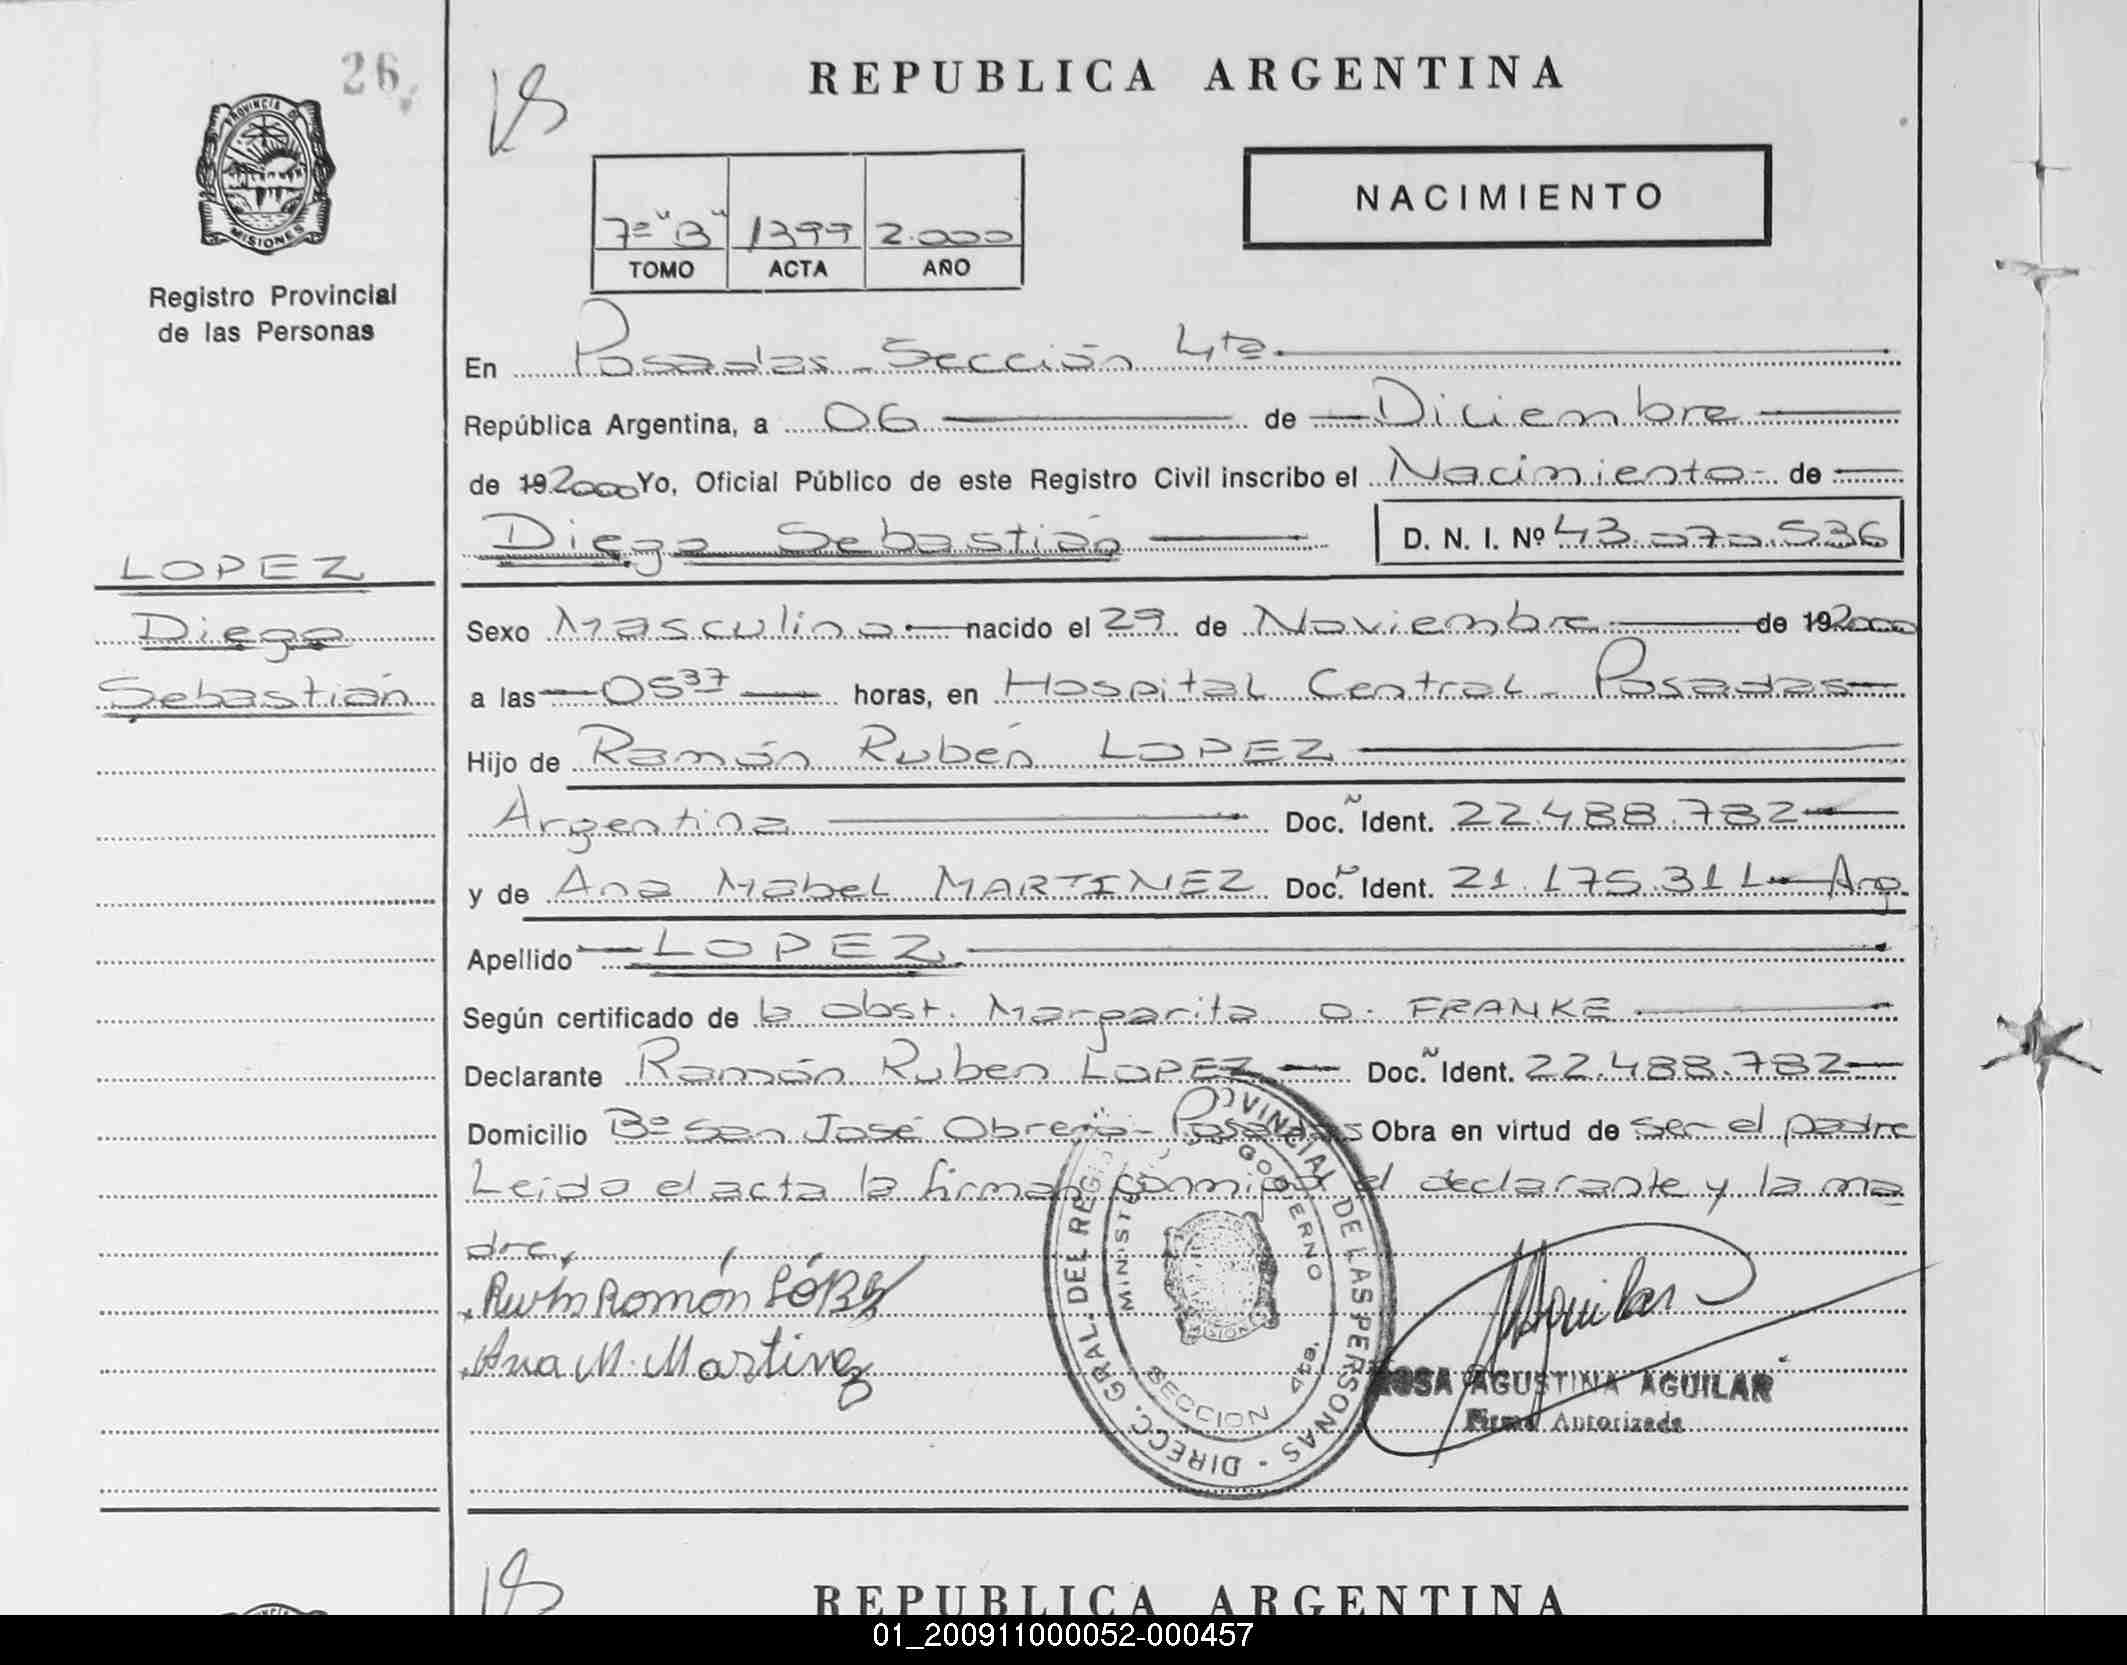 26
REPUBLICA ARGENTINA
PROVINCIA DE
MISIONES
Registro Provincial
de las Personas
7º "B" 1399 2.000
TOMO ACTA AÑO
NACIMIENTO
En Posadas - Sección 4ta
República Argentina, a 06 de Diciembre
de 19 2000 Yo, Oficial Público de este Registro Civil inscribo el Nacimiento - de
Diego Sebastián D. N. I. Nº 43.070.536
LOPEZ
Diego
Sebastián
Sexo Masculino nacido el 29 de Noviembre de 19 2000
a las 05 37 horas, en Hospital Central - Posadas
Hijo de Ramón Rubén LOPEZ
Argentina Doc. Ident. 22.488.782
y de Ana Mabel MARTINEZ Doc. Ident. 21.175.311 - Arg.
Apellido LOPEZ
Según certificado de la obst. Margarita O. FRANKE
Declarante Ramón Ruben LOPEZ Doc. Ident. 22.488.782
Domicilio Bº San José Obrero - Posadas Obra en virtud de ser el padre
Leida el acta la firman conmigo el declarante y la ma
dre.
Ramón LóPez
Ana M. Martinez
DIRECC. GRAL. DEL REGISTRO PROVINCIAL DE LAS PERSONAS -
MINISTERIO DE GOBIERNO
MISIONES
SECCION 4ta.
Aguilar
ROSA AGUSTINA AGUILAR
Firma Autorizada
REPUBLICA ARGENTINA
01_200911000052-000457